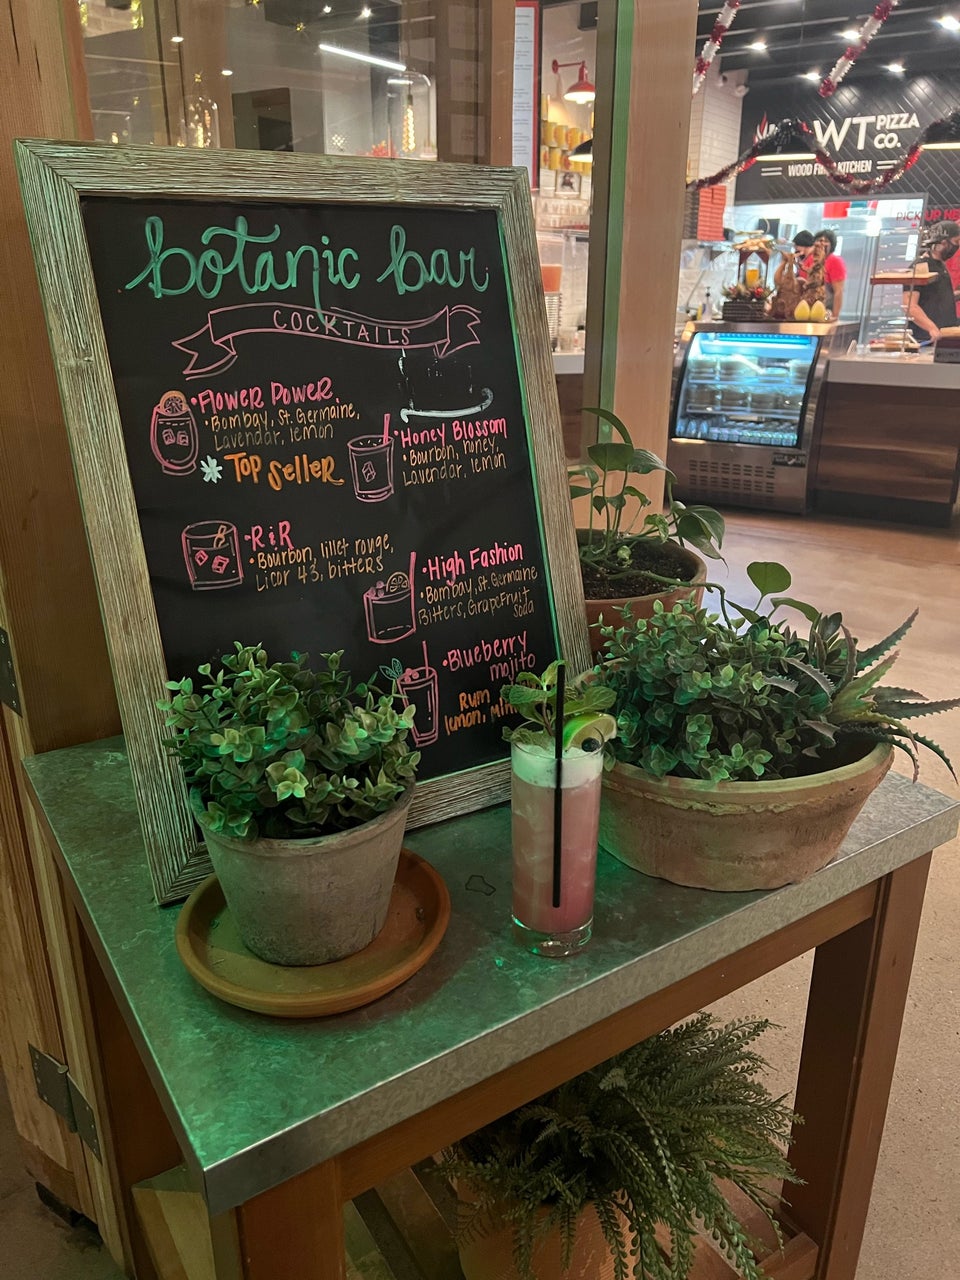 botanic bar
COCKTAILS
• Flower Power
• Bombay, St. Germaine,
Lavendar, lemon
TOP SELLER
• Honey Blossom
• Bourbon, honey,
Lavendar, lemon
• R&R
• Bourbon, lillet rouge,
Licor 43, bitters
• High Fashion
• Bombay, St. Germaine
Bitters, Grapefruit
soda
• Blueberry
mojito
Rum
lemon,
WT PIZZA
CO.
WOOD FIRED KITCHEN
PICK UP HE